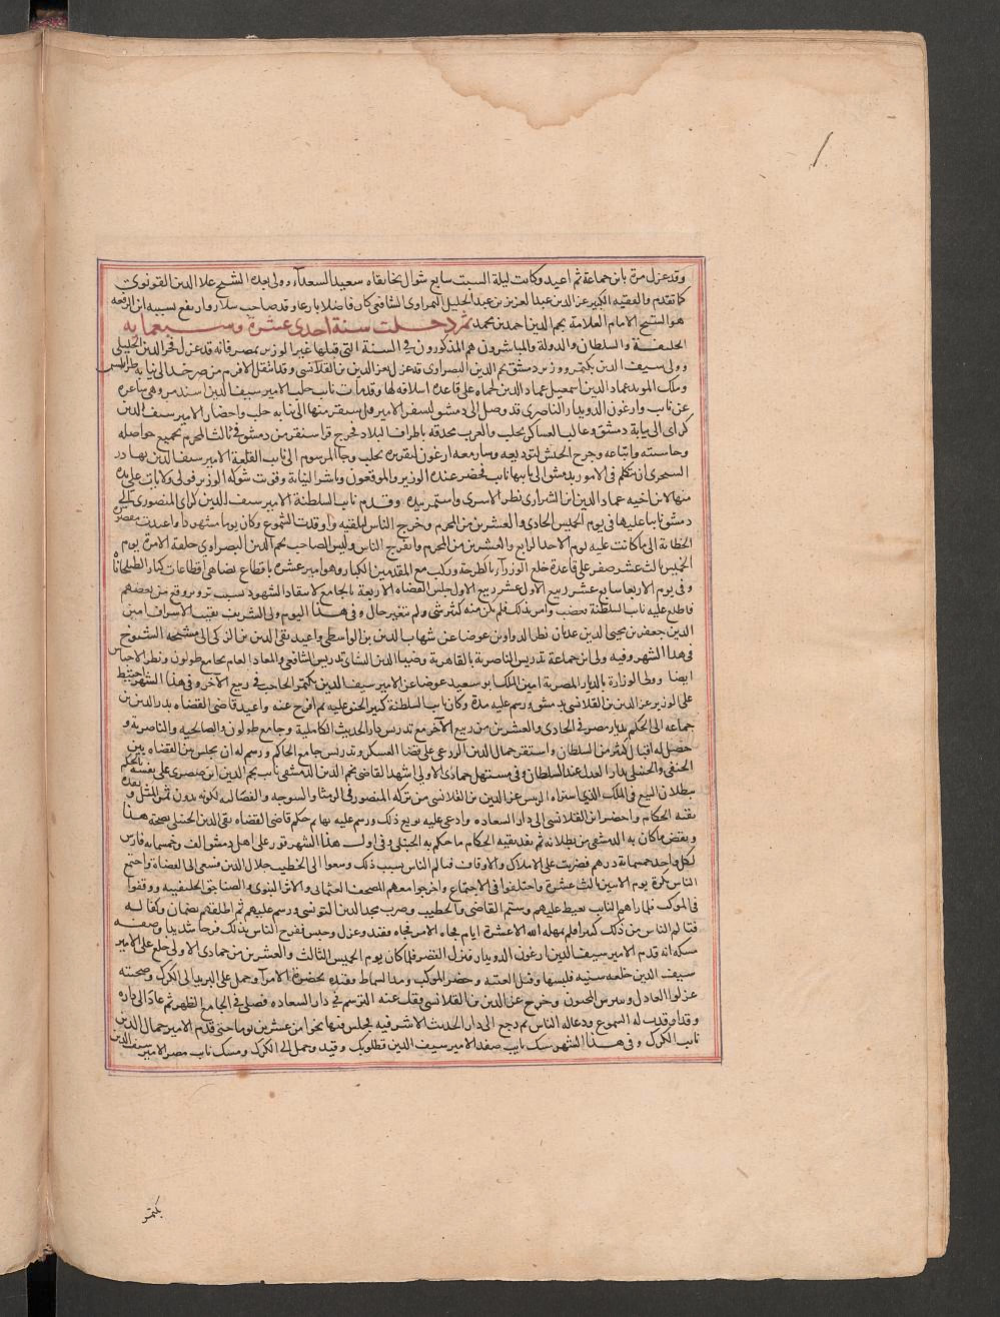 وقد عزل مرة بابن جماعة ثم اعيد وكانت ليلة السبت سابع شوال بخانقاه سعيد السعدآ، وولى بعده الشيخ علا الدين القونوى
كما تقدم والفقيه الكبير عز الدين عبد العزيز بن عبد الجليل النمراوى الشافعى كان فاضلا بارعا وقد صاحب سلار وارتفع بسببه ابن الرفعه
هو الشيخ الامام العلامة نجم الدين احمد بن محمد ثم دخلت سنة احدى عشرة وسبعمايه
الخليفة والسلطان والدولة والمباشرون هم المذكورون في السنة التى قبلها غير الوزير بمصر فانه قد عزل فخر الدين الخليلى
وولى سيف الدين بكتمر ووزير دمشق نجم الدين البصراوى قد عزل بعز الدين بن القلانسى وقد انتقل الافرم من صرخد الى نيابة طرابلس
وملك المويد عماد الدين اسمعيل عماد الدين لحماه على قاعدة اسلافه لها وقد مات نايب حلب الامير سيف الدين استدمر وهى شاغرة
عن نايب وارغون الدويدار الناصرى قد وصل الى دمشق لسفر الامير قراسنقر منها الى نيابه حلب واحضار الامير سيف الدين
كراى الى نيابة دمشق وغالب العساكر بحلب والعرب محدقه باطراف البلاد فخرج قراسنقر من دمشق في ثالث المحرم بجميع حواصله
وحاشيته واتباعه وخرج الجيش لتوديعه وسار معه ارغون لتقريره بحلب وجا المرسوم الى نايب القلعة الامير سيف الدين بهادر
السنجرى ان يتكلم فى الامور بدمشق الى ياتيها نايب فحضر عنده الوزير والموقعون وباشر النيابة وقويت شوكه الوزير فولى ولايات عديده
منها لابن اخيه عماد الدين ابن الشيرازى نظر الاسرى واستمر بيده وقدم نايب السلطنة الامير سيف الدين كراى المنصورى الى
دمشق نايبا عليها فى يوم الخميس الحادى والعشرين من المحرم وخرج الناس لتلقيه واوقدت الشموع وكان يوما مشهودا واعيدت مقصورة
الخطابة الى ما كانت عليه يوم الاحد الرابع والعشرين من المحرم وانفرج الناس ولبس الصاحب نجم الدين البصراوى خلعة الامرة يوم
الخميس ثالث عشر صفر على قاعدة خلع الوزرآ بالطرحة وركب مع المقدمين الكبار وهو امير عشره باقطاع يضاهى اقطاعات كبار الطبلخاناه
وفى يوم الاربعا سابع عشر ربيع الاول جلس القضاه الاربعة بالجامع لانفاد الشهود بسبب تزوير وقع من بعضهم
فاطلع عليه نايب السلطنة فغضب وامر بذلك فلم يكن منه كثير شى ولم يتغير حال وفى هذا اليوم ولى الشريف نقيب الاشراف امين
الدين جعفر بن محيى الدين عدنان نظر الدواوين عوضا عن شهاب الدين بن الواسطى واعيد تقى الدين بن الزكى الى مشيخه الشيوخ
فى هذا الشهر وفيه ولى ابن جماعة تدريس الناصرية بالقاهرة وضيا الدين النشاى تدريس الشافعى والمعاد العام بجامع طولون ونظر الاحباس
ايضا وولى الوزارة بالديار المصرية امين الملك ابو سعيد عوضا عن الامير سيف الدين بكتمر الحاجب فى ربيع الآخر وفى هذا الشهر احتيط
على الوزير عز الدين بن القلانسى بدمشق ورسم عليه مدة وكان نايب السلطنة كثير الحنق عليه ثم افرج عنه واعيد قاضى القضاه بدر الدين بن
جماعه الى الحكم بديار مصر فى الحادى والعشرين من ربيع الآخر مع تدريس دار الحديث الكاملية وجامع طولون والصالحيه والناصرية و
حصل له اقبال كثير من السلطان واستقر جمال الدين الزرعى على قضا العسكر وتدريس جامع الحاكم ورسم له ان يجلس بين القضاه بين
الحنفى والحنبلى بدار العدل عند السلطان وفى مستهل جمادى الاولى اشهد القاضى نجم الدين الدمشقى نايب نجم الدين ابن صصرى على نفسه بالحكم
ببطلان البيع فى الملك الذى اشتراه الرييس عز الدين بن القلانسى من تركه المنصور فى الرمثا والسوجه والفضاليه لكونه بدون ثمن المثل ونفده
بقية الحكام واحضر ابن القلانسى الى دار السعاده وادعى عليه بريع ذلك ورسم عليه بها ثم حكم قاضى القضاه تقى الدين الحنبلى بصحة هذا
ونقض ما كان به الدمشقى من بطلانه ثم نفذ بقية الحكام ما حكم به الحنبلى وفى اول هذا الشهر قرر على اهل دمشق الف وخمسمايه فارس
لكل واحد خمسماية درهم فضربت على الاملاك والاوقاف فتالم الناس بسبب ذلك وسعوا الى الخطيب جلال الدين فسعى الى القضاة واجتمع
الناس بكرة يوم الاثنين ثالث عشرة واحتلفوا فى الاجتماع واخرجوا معهم المصحف العثمانى والاثر النبوى والصناجق الخليفية ووقفوا
فى الموكب فلما راهم النايب تغيظ عليهم وشتم القاضى والخطيب وضرب مجد الدين التونسى ورسم عليهم ثم اطلقهم بضمان وكفاله
فتالم الناس من ذلك كثيرا فلم يمهله الله الا عشرة ايام فجاه الامر فجاه فقيد وعزل وحبس ففرح الناس بذلك فرحا شديدا وصفه
مسكه انه قدم الامير سيف الدين ارغون الدويدار فنزل القصر فلما كان يوم الخميس الثالث والعشرين من جمادى الاولى خلع على الامير
سيف الدين خلعه سنيه فلبسها وقبل العتبة وحضر الموكب ومد السماط وقيده بحضرة الامرآ وحمل على البريد الى الكرك وصحبته
غزلوا العادل وبيبرس المجنون وخرج عز الدين بن القلانسى وفك عنه الترسيم فى دار السعاده فصلى فى الجامع الظهر ثم عاد الى داره
وقد اوقدت له الشموع ودعا له الناس ثم رجع الى دار الحديث الاشرفيه فجلس فيها نحوا من عشرين يوما حتى قدم الامير جمال الدين
نايب الكرك وفى هذا الشهر مسك نايب صفد الامير سيف الدين قطلوبك وقيد وحمل الى الكرك ومسك نايب مصر الامير سيف الدين
بكتمر